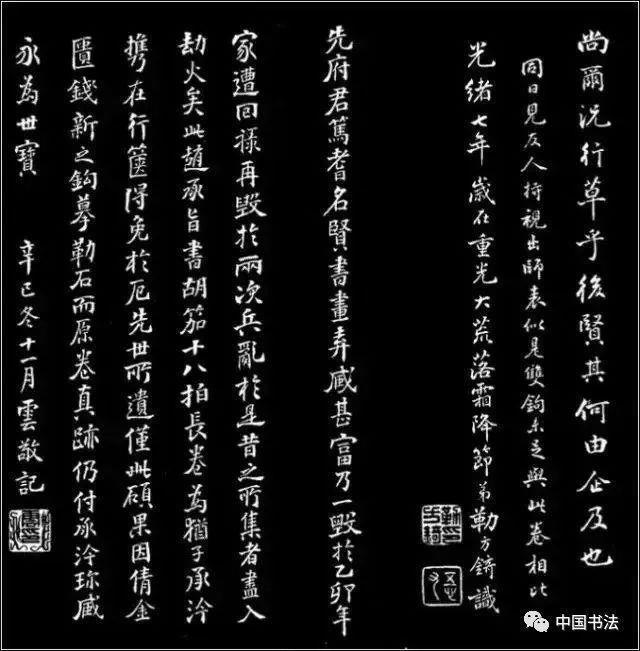 尚爾況行草乎後賢其何由企及也
同日見友人持視出師表似是雙鉤未足與此卷相比
光緒七年歲在重光大荒落霜降節弟勒方錡識
先府君篤耆名賢書畫弆臧甚富乃一毀於乙卯年
家遭回祿再毀於兩次兵亂於是昔之所集者盡入
劫火矣此趙承旨書胡笳十八拍長卷為猶子承泠
攜在行篋得免於厄先世所遺僅此碩果因倩金
匱錢新之鉤摹勒石而原卷真跡仍付承泠珍臧
永為世寶 辛巳冬十一月雲敬記
中国书法